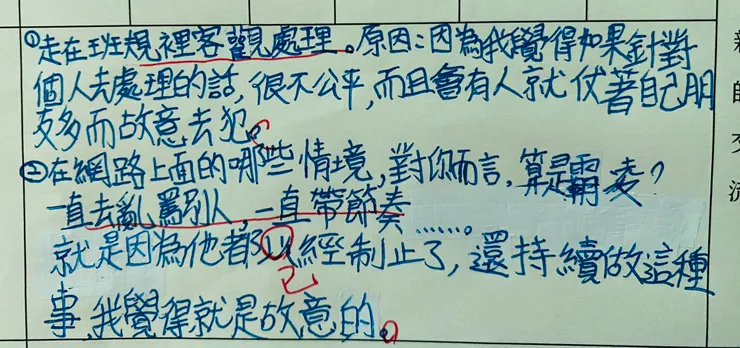 ①走在班規裡客觀處理。原因:因為我覺得如果針對
個人去處理的話,很不公平,而且會有人就仗著自己朋
友多而故意去犯。
②在網路上面的哪些情境,對你而言,算是霸凌?
一直去亂罵別人,一直帶節奏……。
就是因為他都以經制止了,還持續做這種
已
事,我覺得就是故意的。
的
交
流